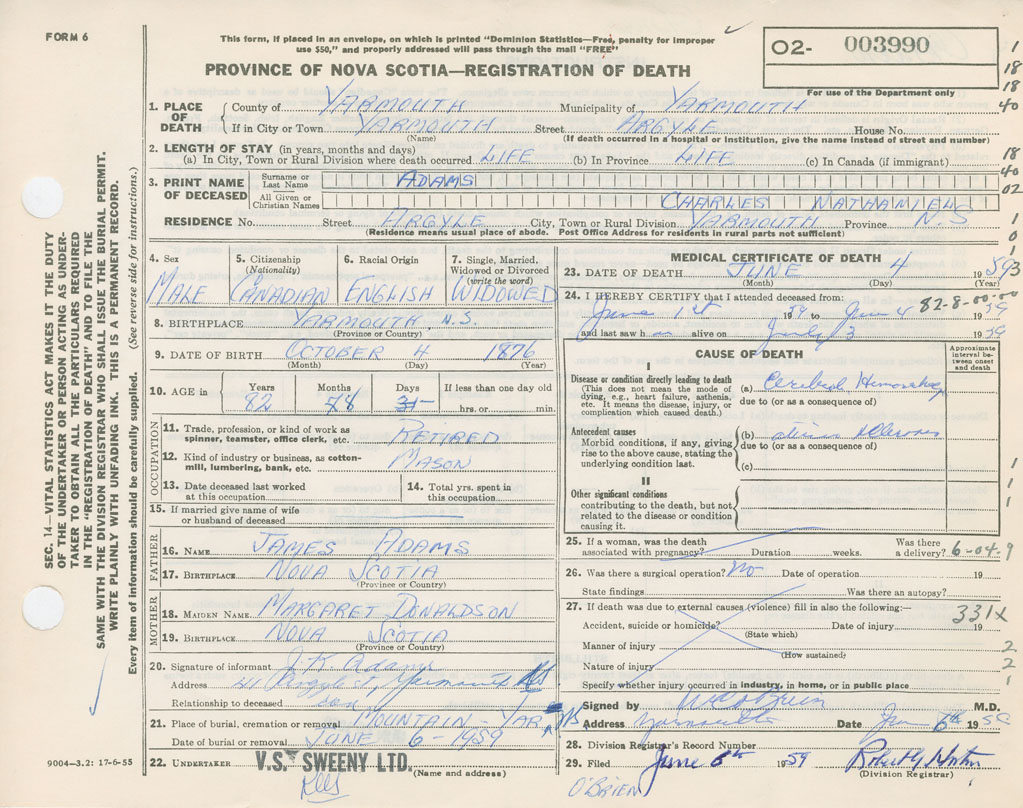 FORM 6
This form, if placed in an envelope, on which is printed "Dominion Statistics—Free, penalty for improper
use $50," and properly addressed will pass through the mail "FREE"
PROVINCE OF NOVA SCOTIA—REGISTRATION OF DEATH
02- 003990
For use of the Department only
1
18
18
40
18
40
02
1
0
3
1. PLACE OF DEATH County of YARMOUTH Municipality of YARMOUTH
If in City or Town YARMOUTH Street ARGYLE House No.
(Name) (If death occurred in a hospital or institution, give the name instead of street and number)
2. LENGTH OF STAY (in years, months and days)
(a) In City, Town or Rural Division where death occurred LIFE (b) In Province LIFE (c) In Canada (if immigrant)
3. PRINT NAME OF DECEASED Surname or Last Name ADAMS
All Given or Christian Names CHARLES NATHANIEL
RESIDENCE No. Street ARGYLE City, Town or Rural Division YARMOUTH Province N.S
(Residence means usual place of abode. Post Office Address for residents in rural parts not sufficient)
4. Sex MALE
5. Citizenship (Nationality) CANADIAN
6. Racial Origin ENGLISH
7. Single, Married, Widowed or Divorced (write the word) WIDOWED
8. BIRTHPLACE YARMOUTH, N.S.
(Province or Country)
9. DATE OF BIRTH OCTOBER 4 1876
(Month) (Day) (Year)
10. AGE in Years Months Days If less than one day old
82 8 hrs. or min.
OCCUPATION
11. Trade, profession, or kind of work as spinner, teamster, office clerk, etc. RETIRED
12. Kind of industry or business, as cotton-mill, lumbering, bank, etc. MASON
13. Date deceased last worked at this occupation
14. Total yrs. spent in this occupation
15. If married give name of wife or husband of deceased
FATHER
16. NAME JAMES ADAMS
17. BIRTHPLACE NOVA SCOTIA
(Province or Country)
MOTHER
18. MAIDEN NAME MARGARET DONALDSON
19. BIRTHPLACE NOVA SCOTIA
(Province or Country)
20. Signature of informant J.K. Adams
Address 41 Argyle St, Yarmouth NS
Relationship to deceased son
21. Place of burial, cremation or removal MOUNTAIN - YAR NS
Date of burial or removal JUNE 6 - 1959
22. UNDERTAKER V.S. SWEENY LTD.
(Name and address)
9004-3.2: 17-6-55
MEDICAL CERTIFICATE OF DEATH
23. DATE OF DEATH JUNE 4 1959
(Month) (Day) (Year)
24. I HEREBY CERTIFY that I attended deceased from: 82-8-00-00
June 1st 1959 to June 4 1959
and last saw h alive on 3 1959
CAUSE OF DEATH
Approximate interval between onset and death
I
Disease or condition directly leading to death
(This does not mean the mode of dying, e.g., heart failure, asthenia, etc. It means the disease, injury, or complication which caused death.)
(a) Cerebral Hemorrhage
due to (or as a consequence of)
Antecedent causes
Morbid conditions, if any, giving rise to the above cause, stating the underlying condition last.
(b)
due to (or as a consequence of)
(c)
II
Other significant conditions
contributing to the death, but not related to the disease or condition causing it.
1
1
1
25. If a woman, was the death associated with pregnancy? Duration weeks. Was there a delivery? 6-04-9
26. Was there a surgical operation? No Date of operation 19
State findings Was there an autopsy?
27. If death was due to external causes (violence) fill in also the following:—
331X
Accident, suicide or homicide? Date of injury 19
(State which)
Manner of injury 2
(How sustained)
Nature of injury 2
Specify whether injury occurred in industry, in home, or in public place 1
Signed by O'Brien M.D.
Address Yarmouth Date June 6th 1959
28. Division Registrar's Record Number
29. Filed June 6th 1959
(Division Registrar)
O'BRIEN
SEC. 14—VITAL STATISTICS ACT MAKES IT THE DUTY
OF THE UNDERTAKER OR PERSON ACTING AS UNDER-
TAKER TO OBTAIN ALL THE PARTICULARS REQUIRED
IN THE "REGISTRATION OF DEATH" AND TO FILE THE
SAME WITH THE DIVISION REGISTRAR WHO SHALL ISSUE THE BURIAL PERMIT.
WRITE PLAINLY WITH UNFADING INK. THIS IS A PERMANENT RECORD.
Every item of information should be carefully supplied. (See reverse side for instructions.)